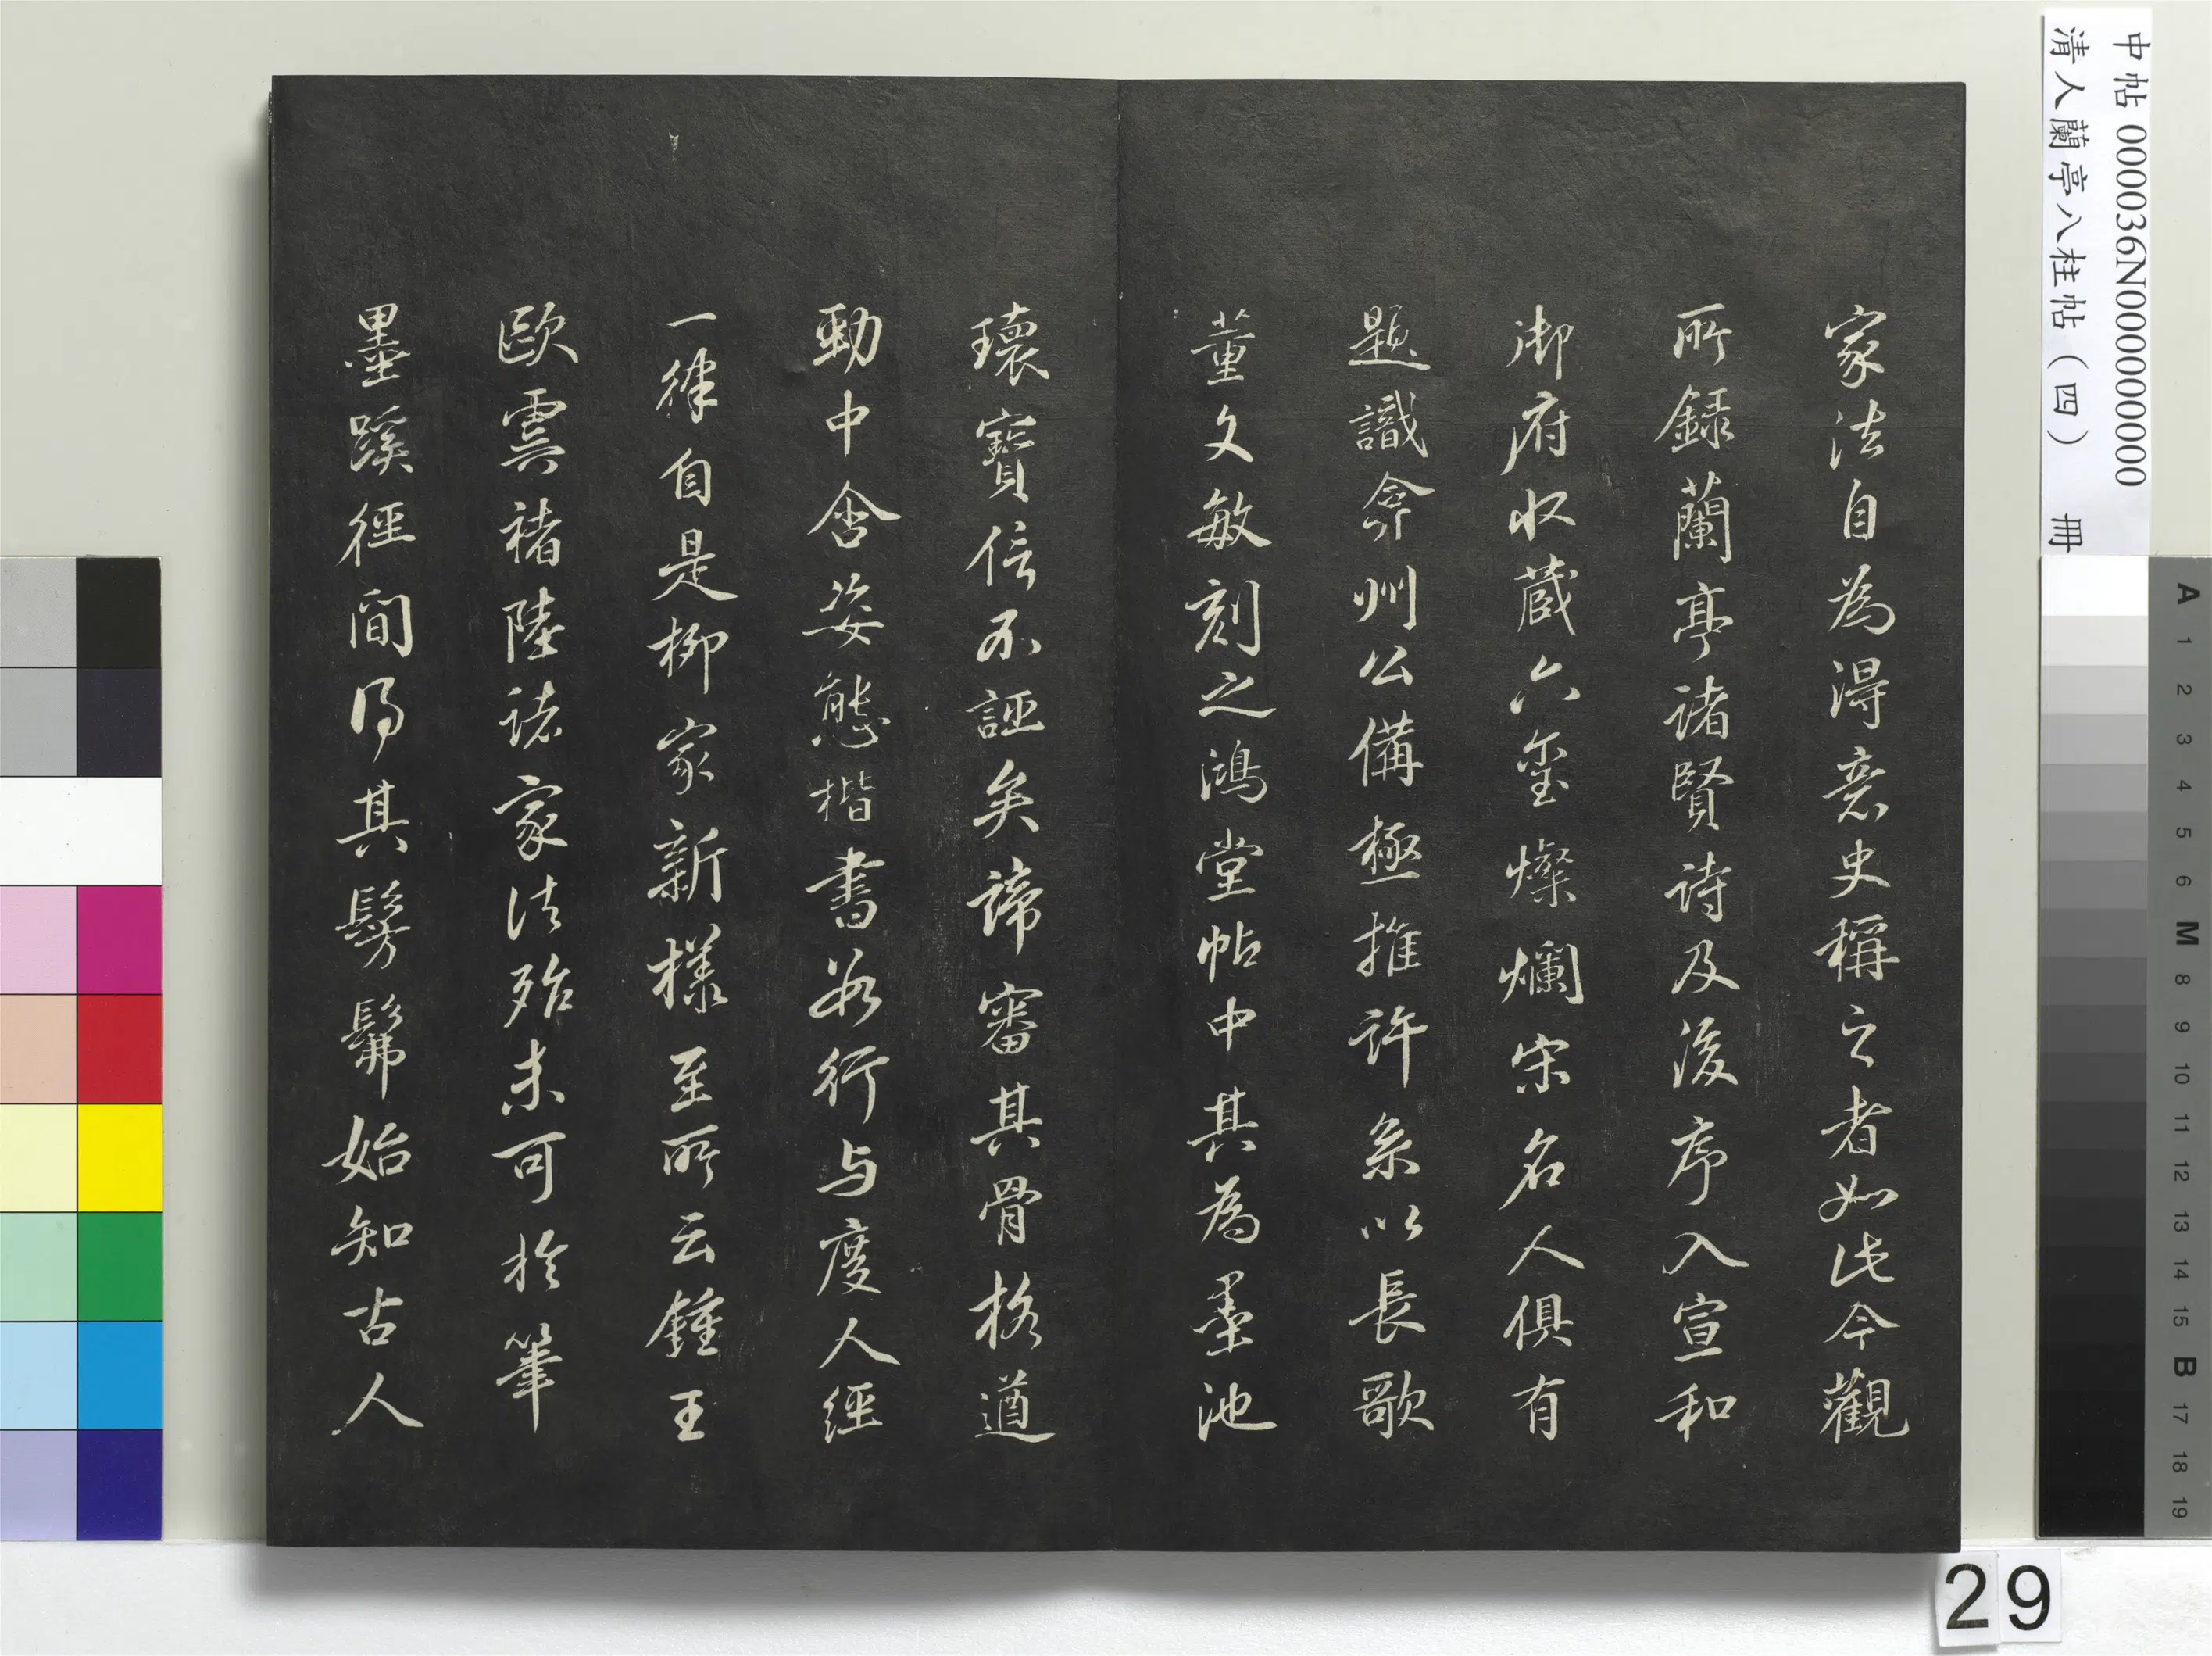 家法自為得意史稱之者如此今觀
所録蘭亭諸賢詩及後序入宣和
御府收藏六璽燦爛宋名人俱有
題識弇州公備極推許系以長歌
董文敏刻之鴻堂帖中其為墨池
瓌寶信不誣矣諦審其骨格遒
勁中含姿態楷書多行与度人經
一律自是柳家新樣至所云鍾王
歐虞褚陸諸家法殆未可於筆
墨蹊徑間得其髣髴始知古人
中帖 000036N000000000
清人蘭亭八柱帖（四） 冊
A 1 2 3 4 5 6 M 8 9 10 11 12 13 14 15 B 17 18 19
29